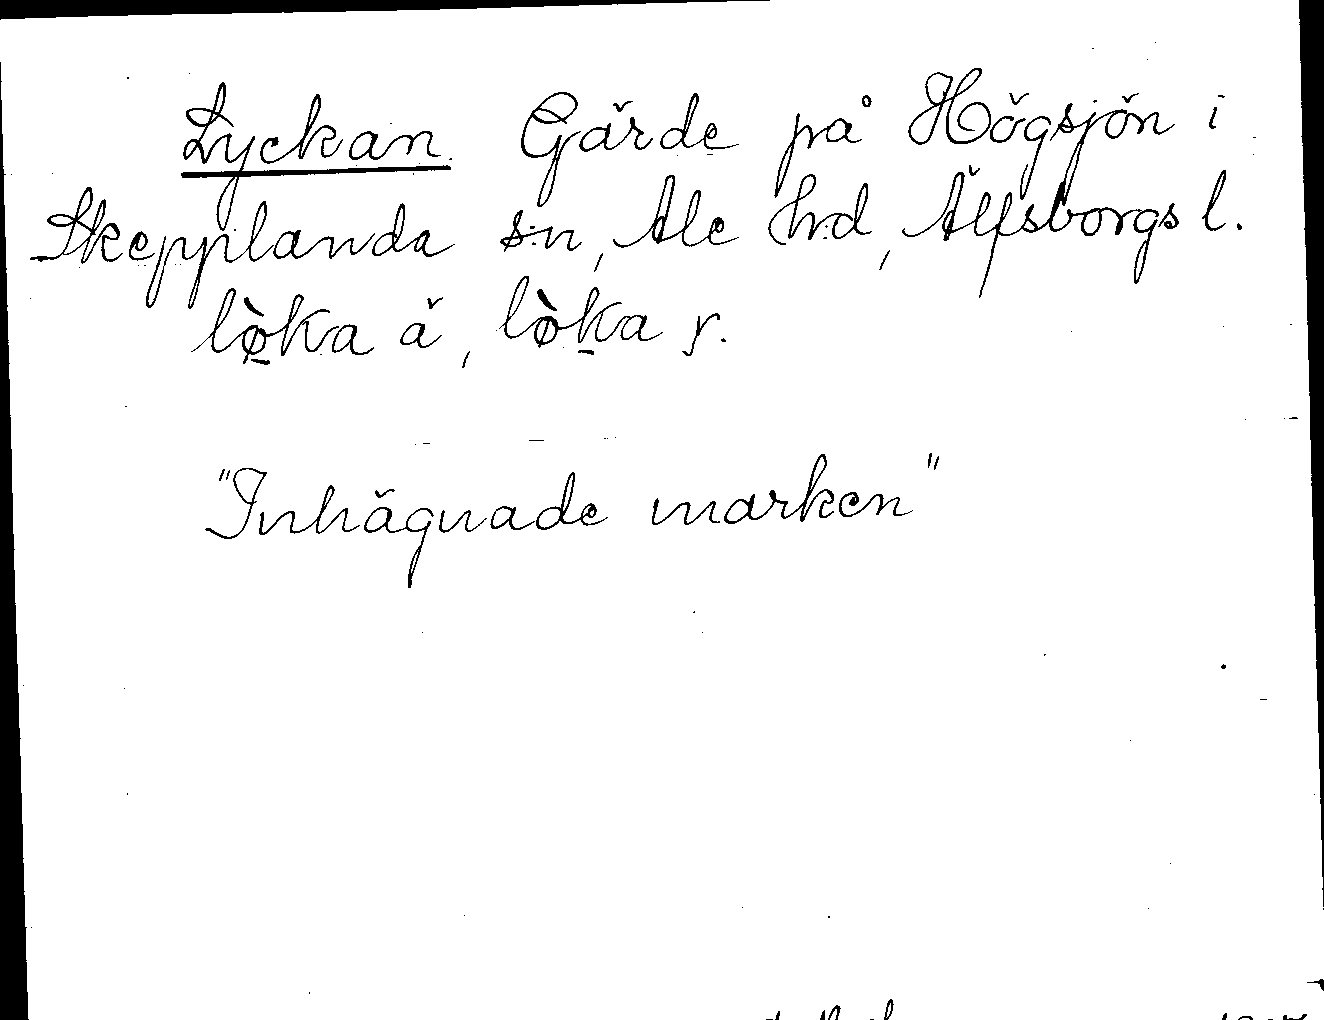 Lyckan Gärde på Högsjön i
Skepplanda sn, Ale hd, Älfsborgs l.
lø̀ka ä, lø̀ka r.
"Inhägnade marken"